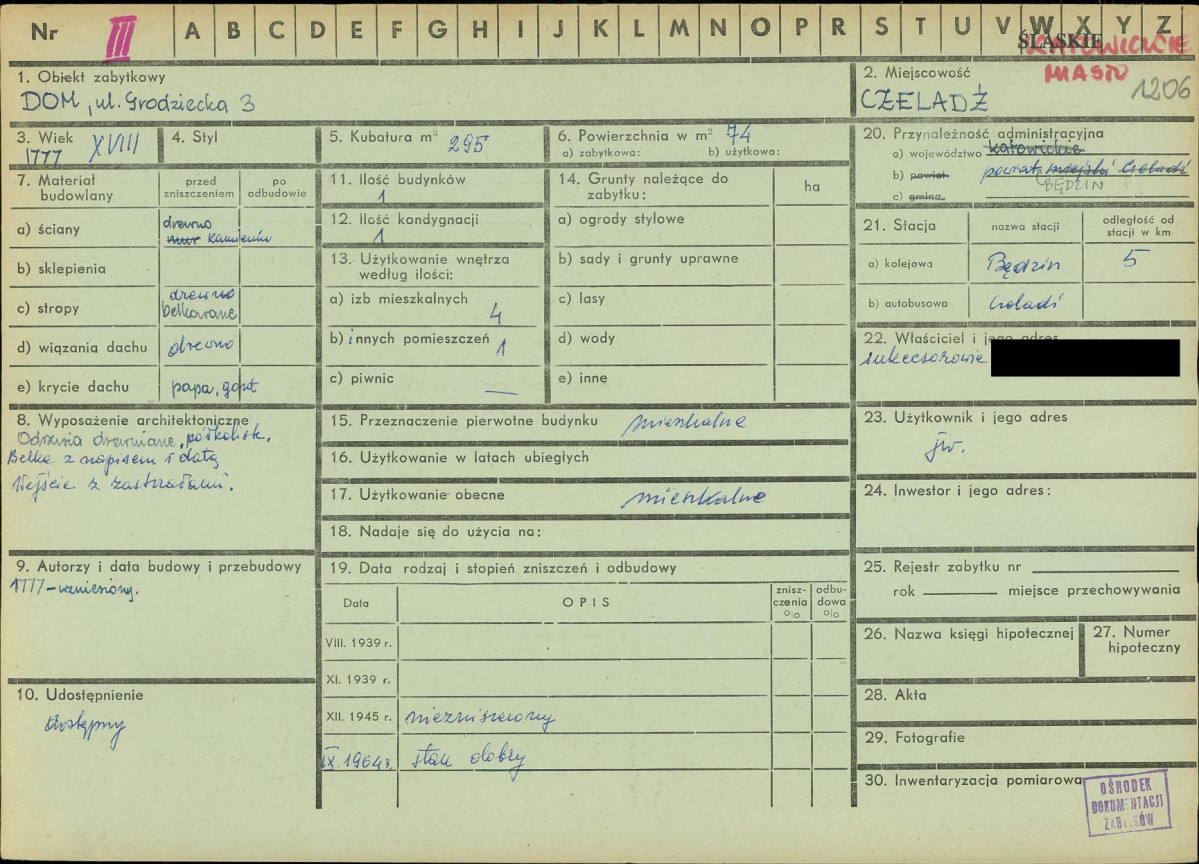 Nr III A B C D E F G H I J K L M N O P R S T U V W X Y Z
ŚLĄSKIE KATOWICKIE
MIASTO 1206
1. Obiekt zabytkowy
DOM, ul. Grodziecka 3
2. Miejscowość
CZELADŹ
3. Wiek XVIII
1777
4. Styl
5. Kubatura m³ 295
6. Powierzchnia w m² 74
a) zabytkowa: b) użytkowa:
7. Materiał budowlany
przed zniszczeniem
po odbudowie
a) ściany drewno
mur kamienia
b) sklepienia
c) stropy drewno
belkowane
d) wiązania dachu drewno
e) krycie dachu papa, gont
8. Wyposażenie architektoniczne
Odrzwia drewniane, półkolist.
Belka z napisem i datą
Wejście z zastrzałami.
9. Autorzy i data budowy i przebudowy
1777 – wzniesiony.
10. Udostępnienie
dostępny
11. Ilość budynków
1
12. Ilość kondygnacji
1
13. Użytkowanie wnętrza
według ilości:
a) izb mieszkalnych 4
b) innych pomieszczeń 1
c) piwnic —
14. Grunty należące do
zabytku: ha
a) ogrody stylowe
b) sady i grunty uprawne
c) lasy
d) wody
e) inne
15. Przeznaczenie pierwotne budynku mieszkalne
16. Użytkowanie w latach ubiegłych
17. Użytkowanie obecne mieszkalne
18. Nadaje się do użycia na:
19. Data rodzaj i stopień zniszczeń i odbudowy
Data OPIS znisz-czenia o/o odbu-dowa o/o
VIII. 1939 r.
XI. 1939 r.
XII. 1945 r. niezniszczony
IX. 1964 r. stan dobry
20. Przynależność administracyjna
a) województwo katowickie
b) powiat powiat: miejski Czeladź
BĘDZIN
c) gmina
21. Stacja
nazwa stacji
odległość od
stacji w km
a) kolejowa Będzin 5
b) autobusowa Czeladź
22. Właściciel i jego adres
sukcesorowie
23. Użytkownik i jego adres
jw.
24. Inwestor i jego adres:
25. Rejestr zabytku nr
rok miejsce przechowywania
26. Nazwa księgi hipotecznej
27. Numer
hipoteczny
28. Akta
29. Fotografie
30. Inwentaryzacja pomiarowa
OŚRODEK
DOKUMENTACJI
ZABYTKÓW